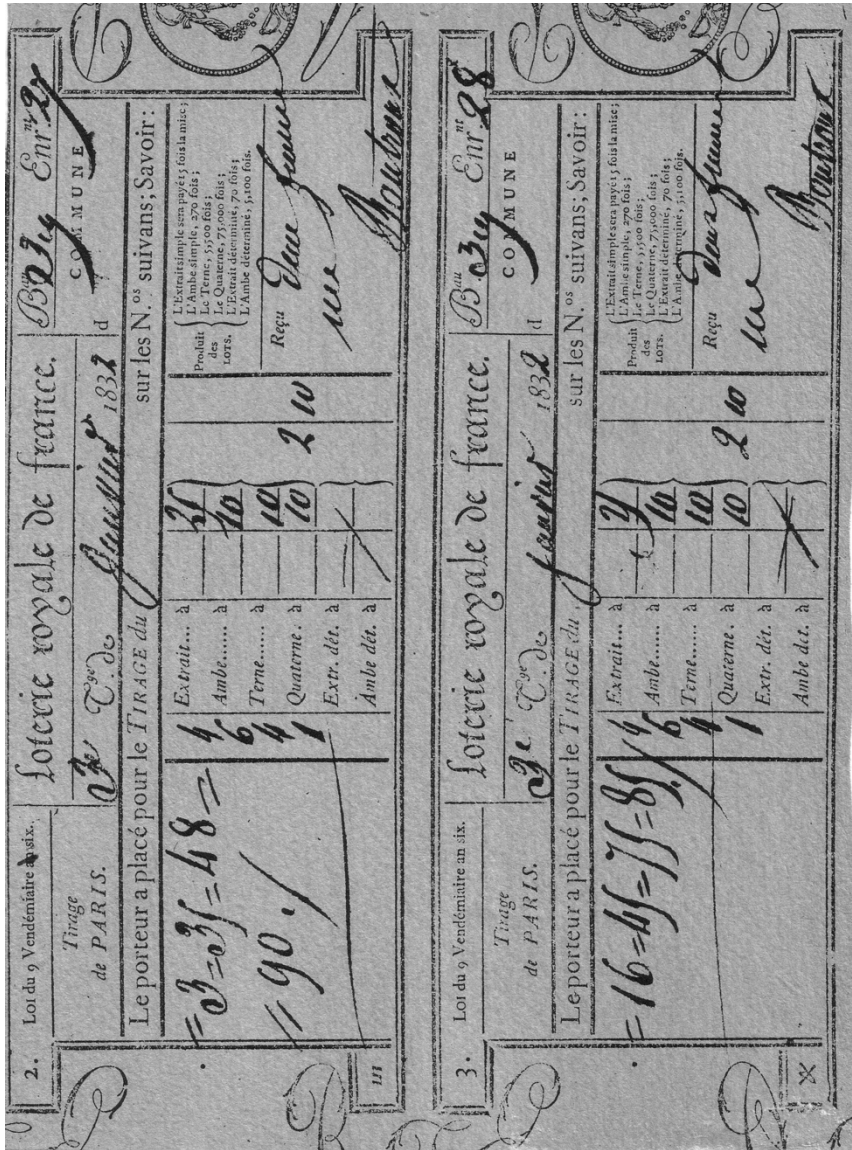 2.
Loi du 9 Vendémiaire an six.
Tirage
de PARIS.
Loterie royale de france.
3e T.ge de Janvier 1832
Bau Enr.nt 27
COMMUNE
d
Le porteur a placé pour le TIRAGE du sur les N.os suivans; Savoir:
= 3 = 35 = 48 =
= 90.
4 Extrait... à 25
6 Ambe...... à 10
4 Terne...... à 10
1 Quaterne. à 10
Extr. dét. à
Ambe dét. à
2 10
Produit
des
LOTS.
L'Extrait simple sera payé 15 fois la mise;
L'Ambe simple, 270 fois;
Le Terne, 5,500 fois;
Le Quaterne, 75,000 fois;
L'Extrait déterminé, 70 fois;
L'Ambe déterminé, 5,100 fois.
Reçu Deux francs
III
3.
Loi du 9 Vendémiaire an six.
Tirage
de PARIS.
Loterie royale de france.
3e T.ge de Janvier 1832
Bau Enr.nt 28
COMMUNE
d
Le porteur a placé pour le TIRAGE du sur les N.os suivans; Savoir:
= 16 = 45 = 75 = 85
4 Extrait... à
6 Ambe...... à 10
4 Terne...... à 10
1 Quaterne. à 10
Extr. dét. à
Ambe dét. à
2 10
Produit
des
LOTS.
L'Extrait simple sera payé 15 fois la mise;
L'Ambe simple, 270 fois;
Le Terne, 5,500 fois;
Le Quaterne, 75,000 fois;
L'Extrait déterminé, 70 fois;
L'Ambe déterminé, 5,100 fois.
Reçu Deux francs